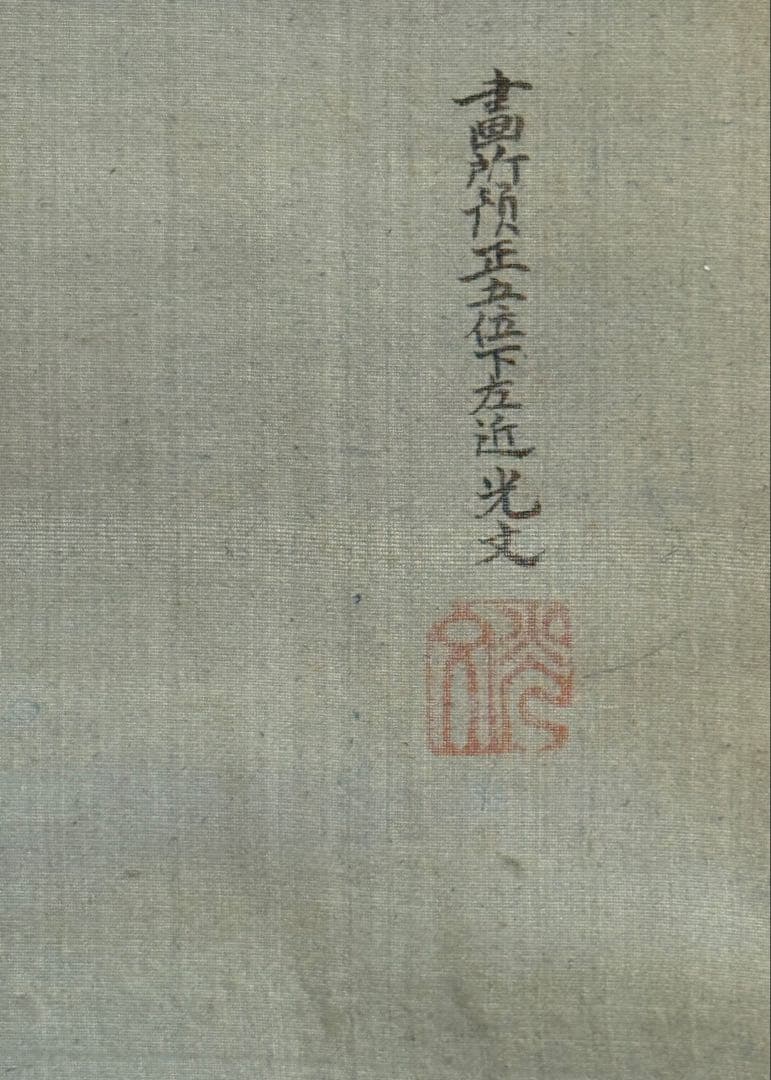 畫所預正五位下左近光文
光文